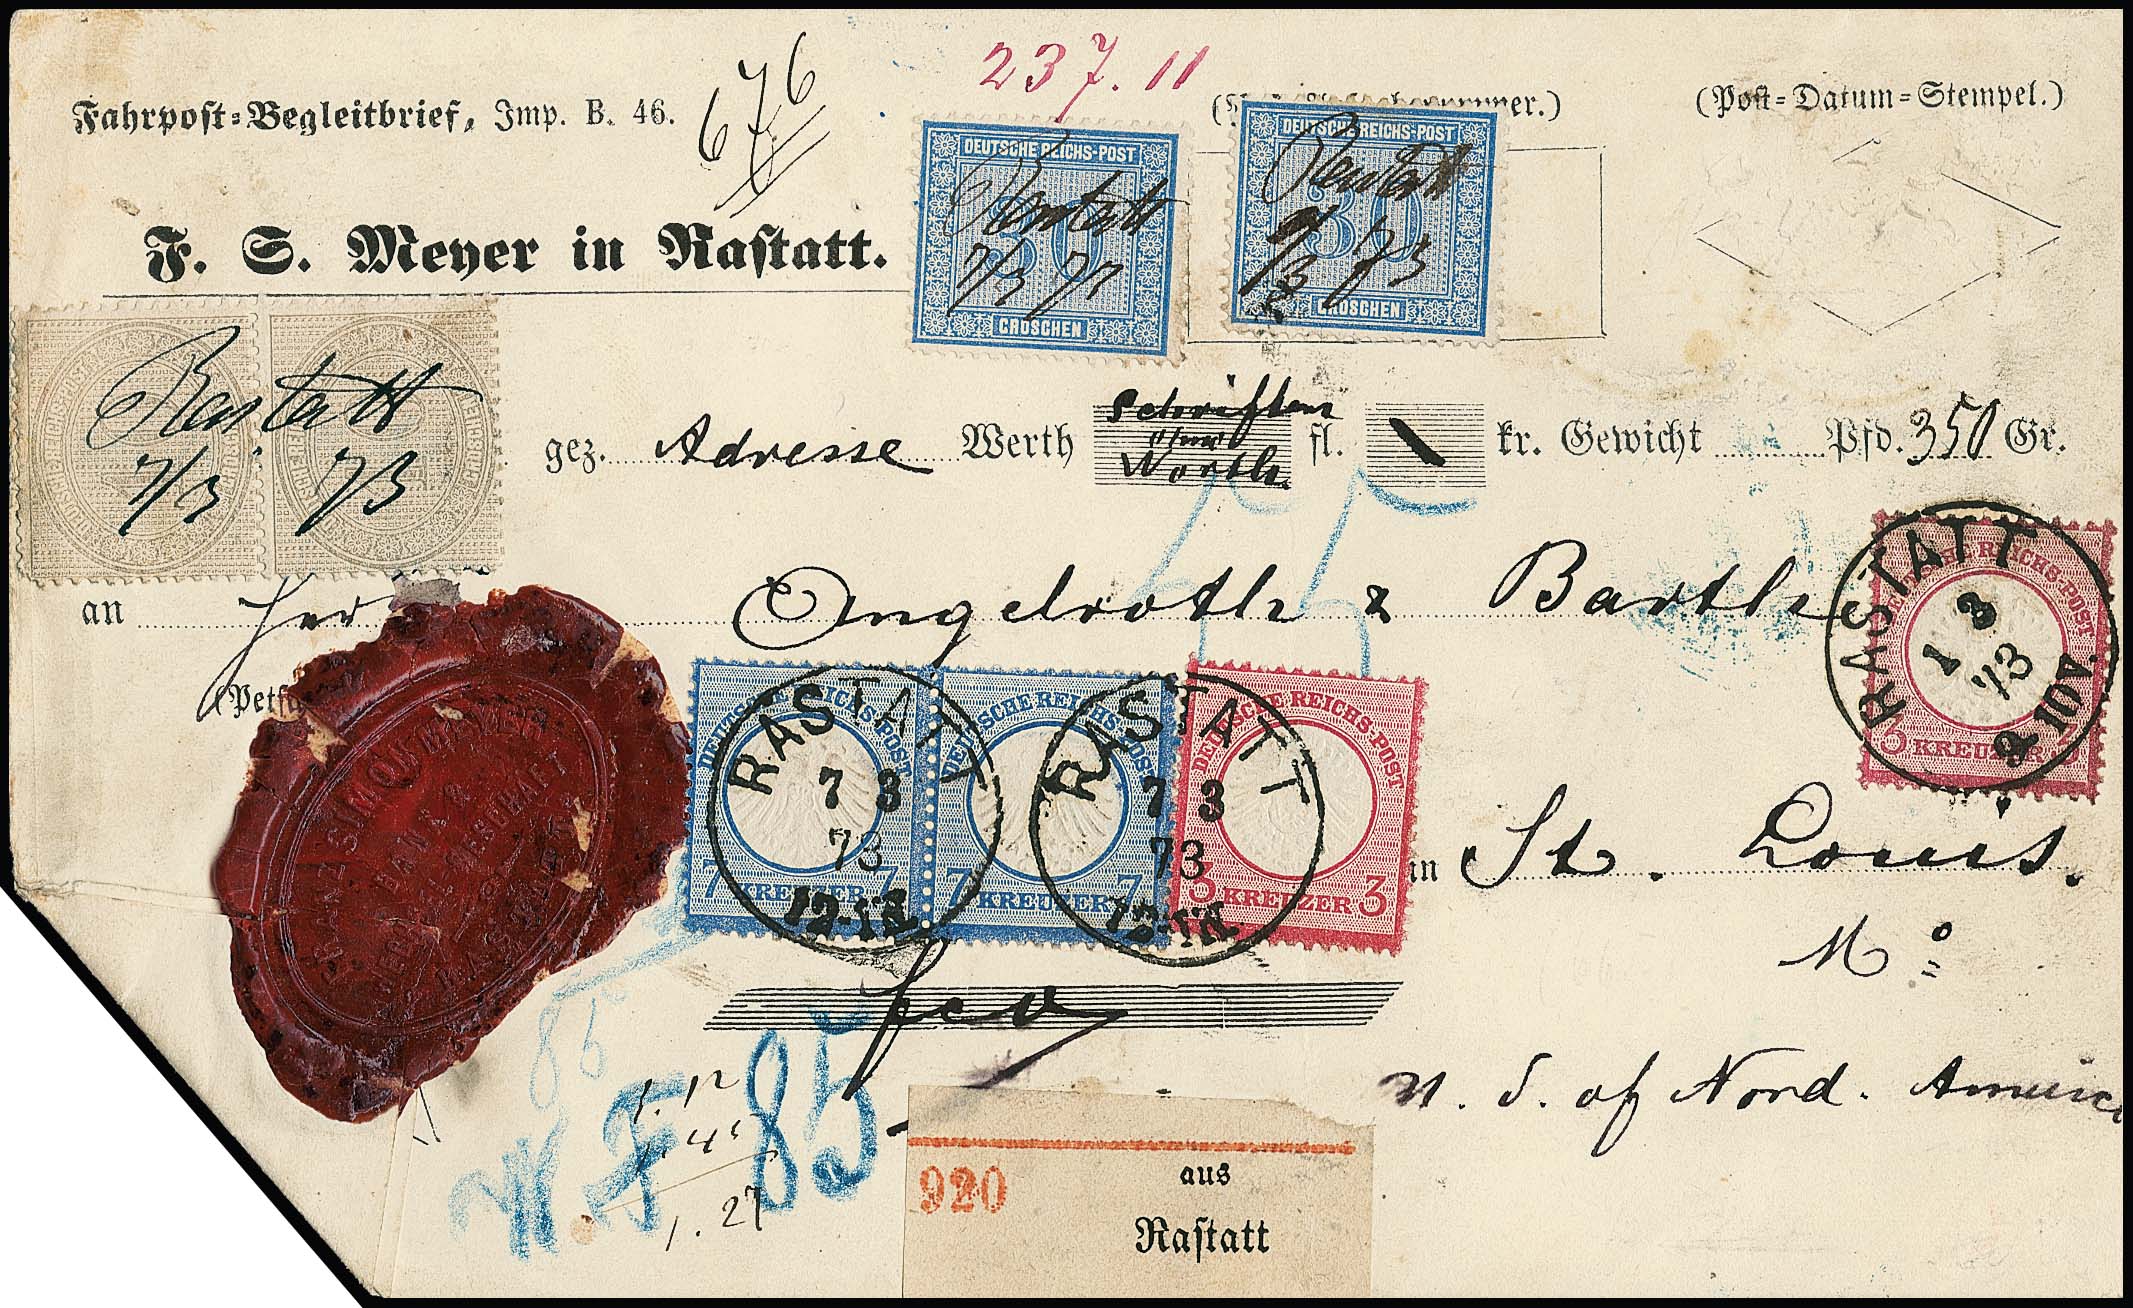 676
237. 11
Fahrpost=Begleitbrief, Imp. B. 46.
(Post=Datum=Stempel.)
F. S. Meyer in Rastatt.
DEUTSCHE REICHS-POST
30
GROSCHEN
Rastatt
7/3 73
DEUTSCHE REICHS-POST
30
GROSCHEN
Rastatt
7/3 73
Rastatt
7/3 73
gez. Adresse Werth Schriften ohne Worth. fl. kr. Gewicht Pfd. 350 Gr.
an Herr Angelroth & Barth
RASTATT
1 3
73
& IOV.
DEUTSCHE REICHS-POST
3 KREUZER 3
DEUTSCHE REICHS-POST
7 KREUZER 7
DEUTSCHE REICHS-POST
7 KREUZER 7
DEUTSCHE REICHS-POST
3 KREUZER 3
RASTATT
7 3
73
RASTATT
7 3
73
in St. Louis.
Mo
fco
U. S. of Nord. America
86
W. F. 85
1. 12
1. 27
920
aus
Rastatt